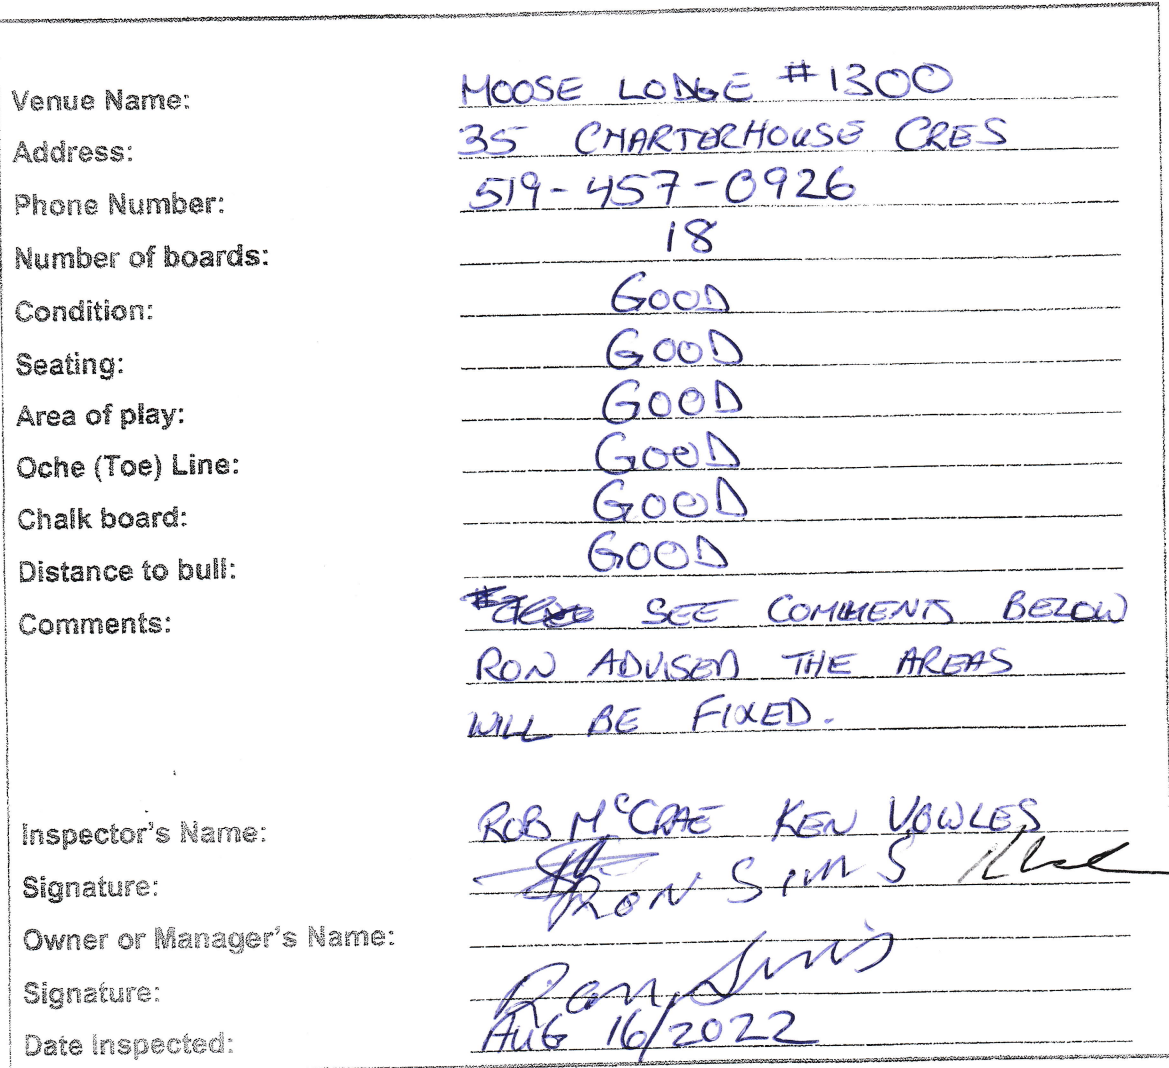 Venue Name: MOOSE LODGE #1300
Address: 35 CHARTERHOUSE CRES
Phone Number: 519-457-0926
Number of boards: 18
Condition: GOOD
Seating: GOOD
Area of play: GOOD
Oche (Toe) Line: GOOD
Chalk board: GOOD
Distance to bull: GOOD
Comments: SEE COMMENTS BELOW
RON ADVISED THE AREAS
WILL BE FIXED.
Inspector's Name: ROB McCRAE KEN VOWLES
Signature:
RON SIMS
Owner or Manager's Name:
Signature: Ron Sims
Date Inspected: AUG 16/2022